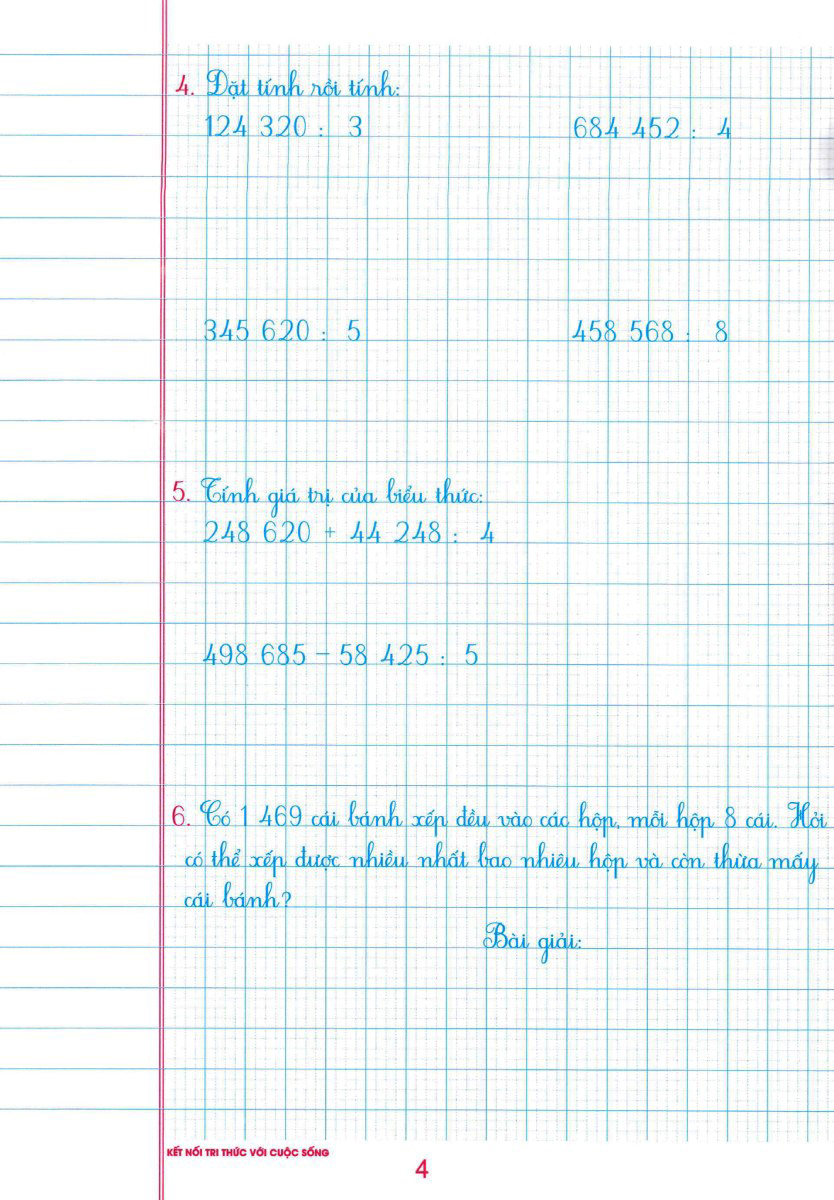 4. Đặt tính rồi tính:
124 320 : 3 684 452 : 4
345 620 : 5 458 568 : 8
5. Tính giá trị của biểu thức:
248 620 + 44 248 : 4
498 685 – 58 425 : 5
6. Có 1 469 cái bánh xếp đều vào các hộp, mỗi hộp 8 cái. Hỏi
có thể xếp được nhiều nhất bao nhiêu hộp và còn thừa mấy
cái bánh?
Bài giải:
KẾT NỐI TRI THỨC VỚI CUỘC SỐNG
4